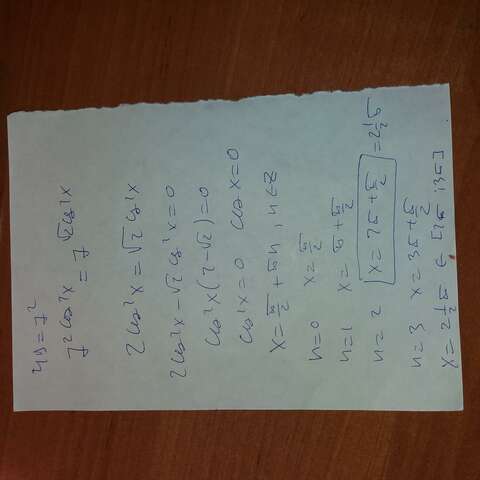 49 = 7²
7^(2cos²x) = 7^(√2 cos²x)
2cos²x = √2 cos²x
2cos²x - √2 cos²x = 0
cos²x(2-√2) = 0
cos²x = 0 cosx = 0
x = π/2 + πn, n ∈ Z
n = 0 x = π/2
n = 1 x = π + π/2
n = 2 x = 2π + π/2 = 2½π
n = 3 x = 3π + π/2
x = 2½π ∈ [2π; 3π]